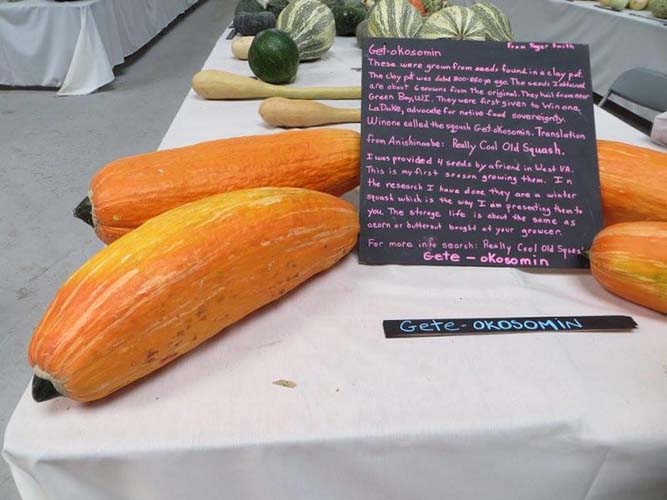 Get-okosomin From Roger Smith
These were grown from seeds found in a clay pot.
The clay pot was dated 800-850 yo ago. The seeds I obtained
are about 6 seasons from the original. They hail from near
Green Bay, WI. They were first given to Winona
LaDuke, advocate for native food sovereignty.
Winona called the squash Get-okosomin. Translation
from Anishinaabe: Really Cool Old Squash.
I was provided 4 seeds by a friend in West VA.
This is my first season growing them. In
the research I have done they are a winter
squash which is the way I am presenting them to
you. The storage life is about the same as
acorn or butternut bought at your growcer.
For more info search: Really Cool Old Squash
Gete - okosomin
Gete - OKOSOMIN